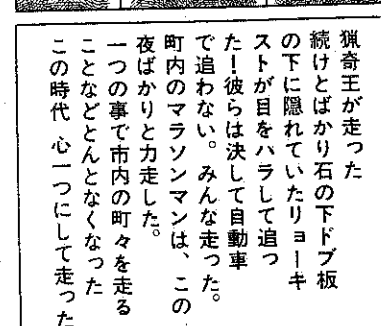 猟奇王が走った
続けとばかり石の下ドブ板
の下に隠れていたリョーキ
ストが目をバラして追っ
た！彼らは決して自動車
で追わない。みんな走った。
町内のマラソンマンは、この
夜ばかりと力走した。
一つの事で市内の町々を走る
ことなどとんとなくなった
この時代 心一つにして走った